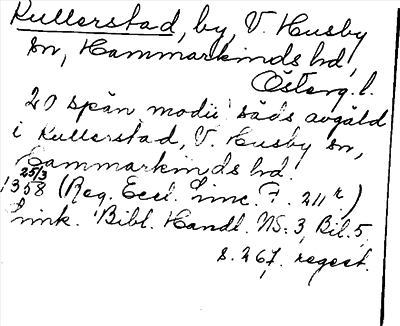 Kullerstad, by, V. Husby
sn, Hammarkinds hd,
Österg. l.
20 spän modii säds avgäld
i Kullerstad, V. Husby sn,
Hammarkinds hd.
25/3
1358 (Reg. Eccl. Linc. F. 211r)
Link. Bibl. Handl. NS. 3, Bil. 5,
s. 267, regest.